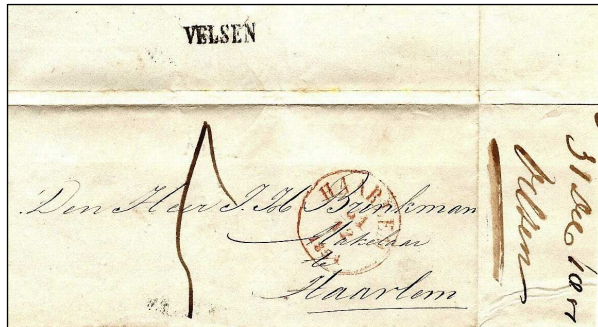 VELSEN
Den Heer J. H. Brinkman
Makelaar
te
Haarlem
HAARLEM
31
12
31 Dec
Velsen